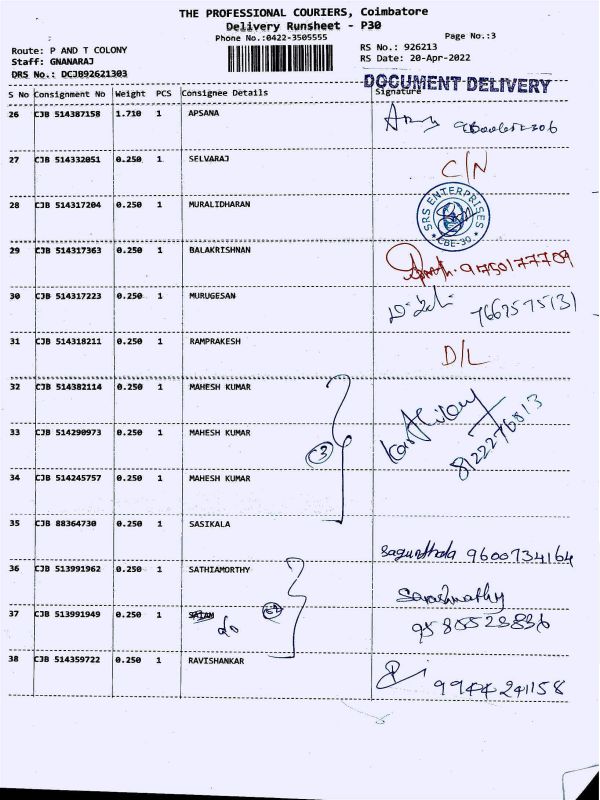 THE PROFESSIONAL COURIERS, Coimbatore
Delivery Runsheet - P30
Phone No.:0422-3505555
Page No.:3
Route: P AND T COLONY
RS No.: 926213
Staff: GNANARAJ
RS Date: 20-Apr-2022
DRS No.: DCJB92621303
DOCUMENT DELIVERY
S No Consignment No Weight PCS Consignee Details Signature
26 CJB 514387158 1.710 1 APSANA
27 CJB 514332051 0.250 1 SELVARAJ C/N
28 CJB 514317204 0.250 1 MURALIDHARAN SRS ENTERPRISES * CBE-30 *
29 CJB 514317363 0.250 1 BALAKRISHNAN 9750177709
30 CJB 514317223 0.250 1 MURUGESAN
31 CJB 514318211 0.250 1 RAMPRAKESH D/L
32 CJB 514382114 0.250 1 MAHESH KUMAR
33 CJB 514290973 0.250 1 MAHESH KUMAR 8122276813
34 CJB 514245757 0.250 1 MAHESH KUMAR
35 CJB 88364730 0.250 1 SASIKALA 9600734164
36 CJB 513991962 0.250 1 SATHIAMORTHY
37 CJB 513991949 0.250 1 do
38 CJB 514359722 0.250 1 RAVISHANKAR 9944241158